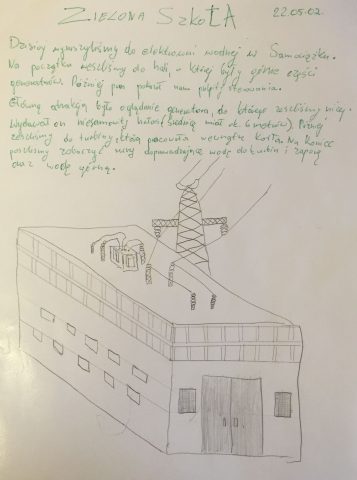 ZIELONA SZKOŁA 22.05.02.
Dzisiaj wyruszyliśmy do elektrowni wodnej w Samociążku.
Na początku weszliśmy do hali, w której były górne części
generatorów. Później pan pokazał nam pulpit sterowania.
Główną atrakcją było oglądanie generatora, do którego zeszliśmy niżej.
Wydawał on niesamowity hałas (średnicę miał ok. 6 metrów). Później
zeszliśmy do turbiny, która pracowała wewnątrz kotła. Na koniec
poszliśmy zobaczyć rury doprowadzające wodę do turbin i zaporę
oraz wodę górną.